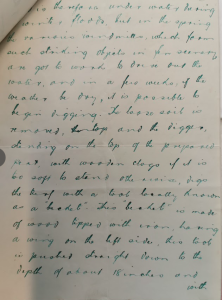 the            under water during
winter floods, but in the spring
                windmills, which form
such striking objects in fen scenery
are got to work to draw out the
water, and in a few weeks, if the
weather be dry, it is possible to
begin digging. The loose soil is
removed,        and the digger,
standing on the top of the proposed
pear, with wooden clogs if it is
too soft to stand otherwise, digs
the turf with a tool locally known
as a "becket". This "becket" is made
of wood tipped with iron, having
a wing on the left side. This tool
is pushed straight down to the
depth of about 18 inches and
with